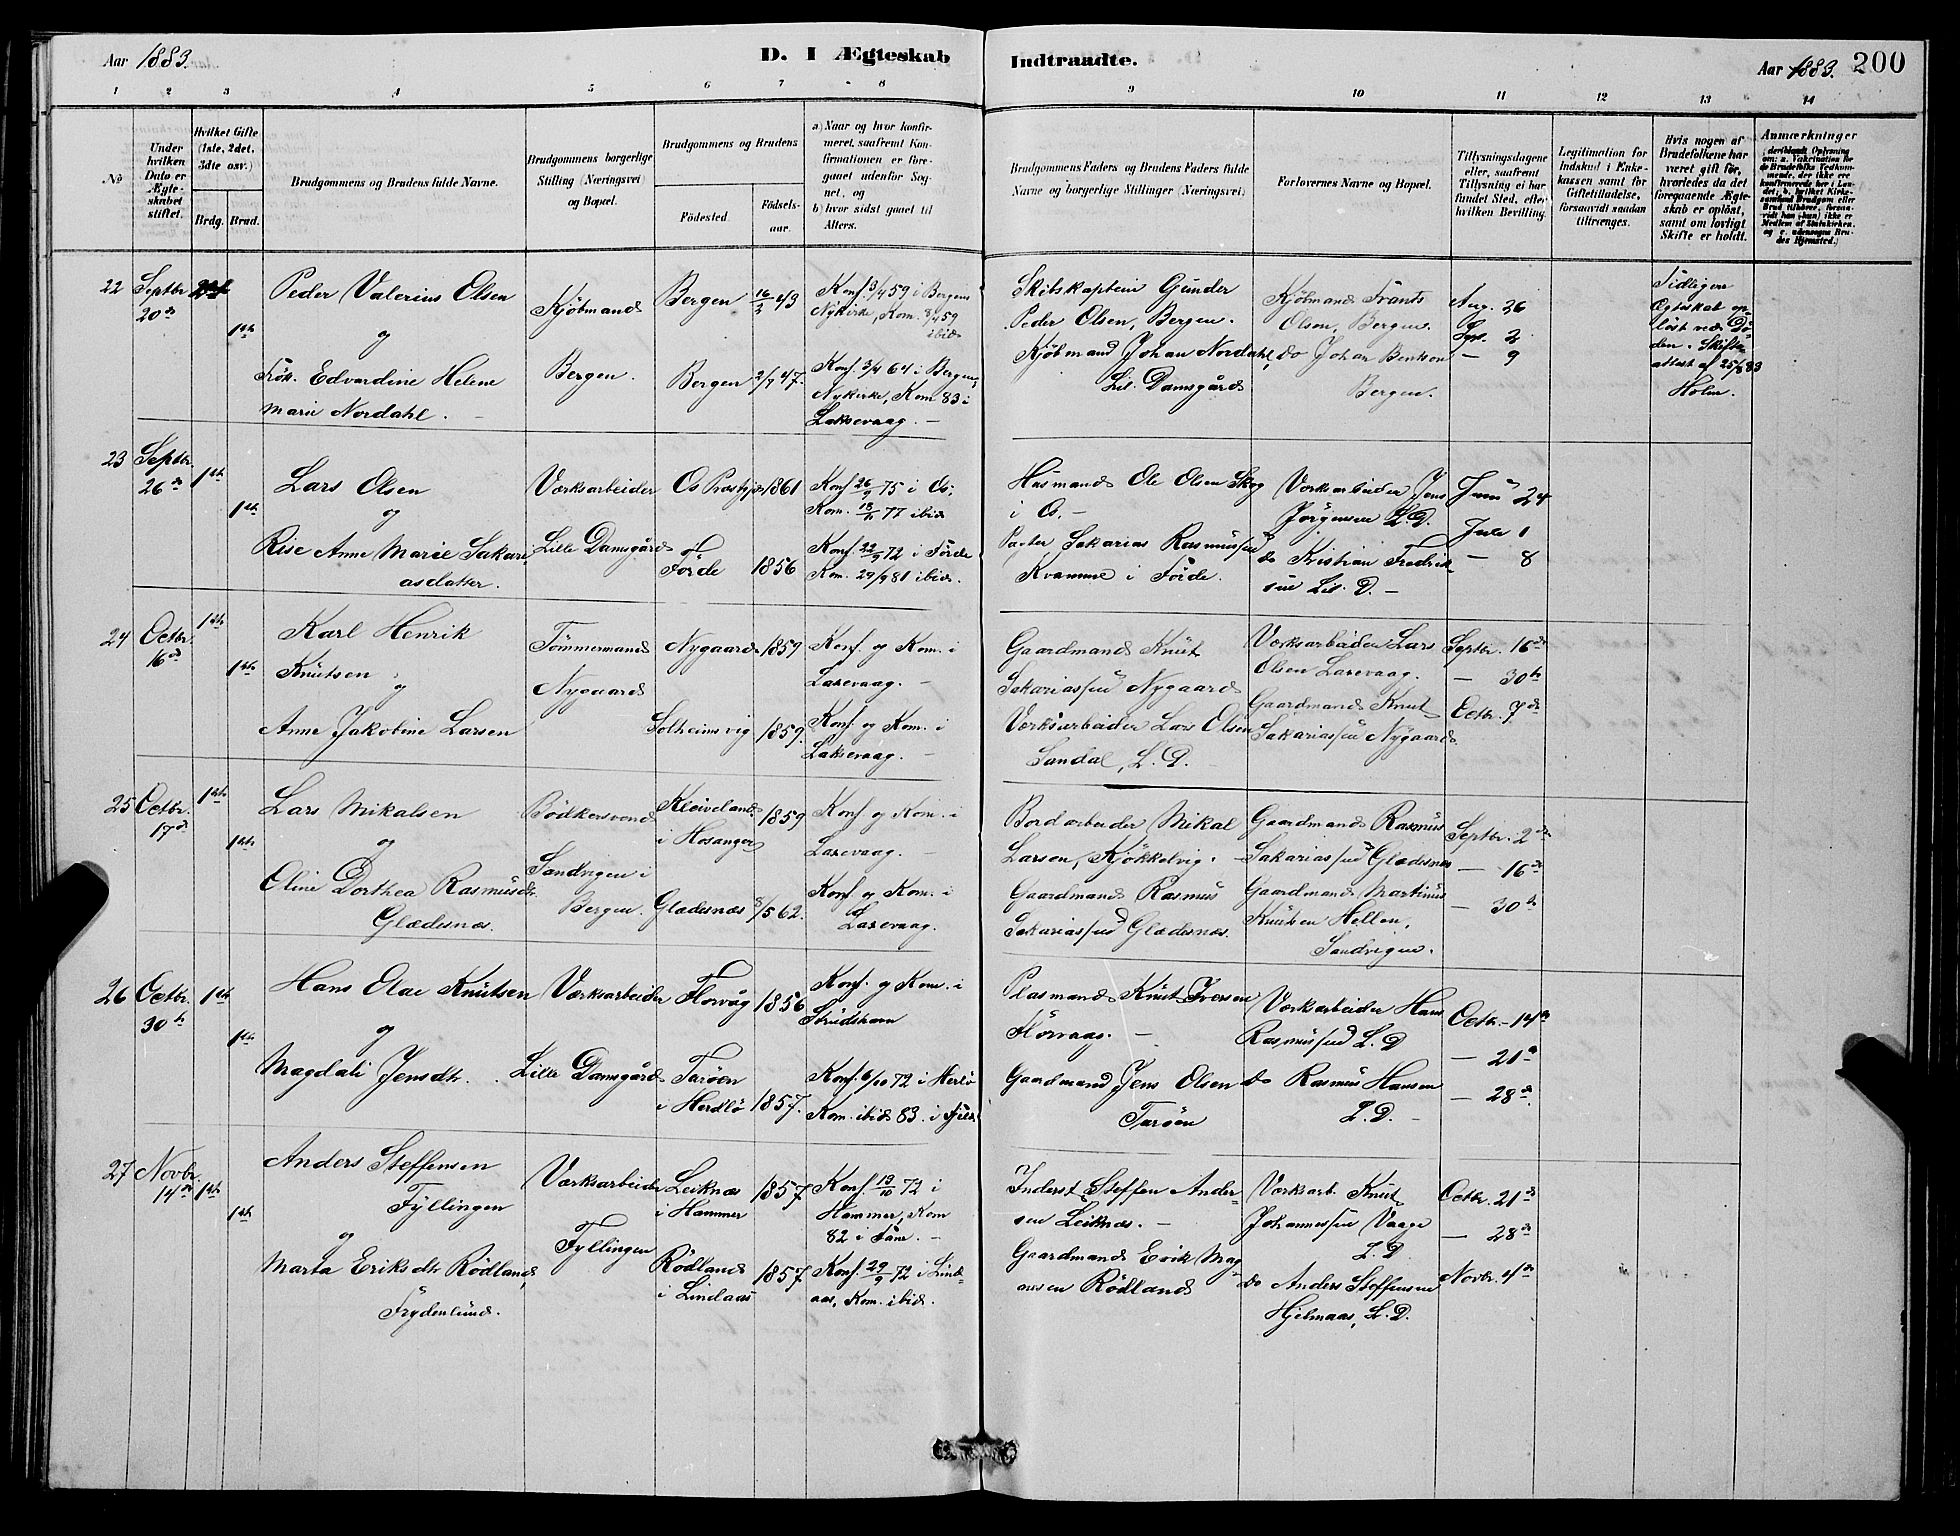 Aar 1883.
D. I Ægteskab Indtraadte.
Aar 1883. 200
1 2 3 4 5 6 7 8 9 10 11 12 13 14
No
Under hvilken Dato er Ægteskabet stiftet.
Hvilket Gifte (1ste, 2det, 3dte osv.)
Brdg. Brud.
Brudgommens og Brudens fulde Navne.
Brudgommens borgerlige Stilling (Næringsvei) og Bopæl.
Brudgommens og Brudens
Fødested.
Fødselsaar.
a) Naar og hvor konfirmeret, saafremt Konfirmationen er foregaaet udenfor Sognet, og
b) hvor sidst gaaet til Alters.
Brudgommens Faders og Brudens Faders fulde Navne og borgerlige Stillinger (Næringsvei)
Forlovernes Navne og Bopæl.
Tillysningsdagene eller, saafremt Tillysning ei har fundet Sted, efter hvilken Bevilling.
Legitimation for Indskud i Enkekassen samt for Giftetilladelse, forsaavidt saadan tiltrænges.
Hvis nogen af Brudefolkene har været gift før, hvorledes da det foregaaende Ægteskab er opløst, samt om lovligt Skifte er holdt.
Anmærkninger
22 Septbr. 20de
1ste
Peder Valerius Olsen
og
Frøk. Edvardine Helene
Marie Nordahl.
Kjøbmand
Bergen.
Bergen 16/2 43
Bergen 2/7 47.
Konf. 3/4 59 i Bergens
Nykirke, Kom.
ibid
Konf. 3/4 64 i Bergens
Nykirke, Kom 83 i
Laksevaag.
Skibskaptein Gunder
Peder Olsen, Bergen.
Kjøbmand Johan Nordahl,
Lil. Damsgård
Kjøbmand Frants
Olsen, Bergen.
do Johan Bentson
Bergen.
Aug. 26
Spt. 2
— 9
Tidligere
Ægteskab op-
løst ved Dø-
den. Skifte
attest af 25/8 83
Holm.
23 Septbr. 26de
1ste
1ste
Lars Olsen
og
Rise Anne Marie Sakari
asdatter.
Værksarbeider
Lille Damsgård
Os Prestgj. 1861
Førde 1856
Konf. 26/9 75 i Os;
Kom. 18/11 77 ibid
Konf. 22/9 72 i Førde
Kom. 29/9 81 ibid.
Husmand Ole Olsen Skog
i Os.
Sakarias Rasmussen
Kvamme i Førde.
Værksarbeider Jens
Jørgensen L D.
do Kristian Fredrik
sen Lil. D.
Juni 24
Juli 1
— 8
24 Octbr. 16de
1ste
1ste
Karl Henrik
Knutsen
og
Anne Jakobine Larsen
Tømmermand
Nygaard
Nygaard 1859
Solheimsvig 1859.
Konf. og Kom. i
Laxevaag.
Konf. og Kom. i
Laksevaag.
Gaardmand Knut
Sakariassen Nygaard
Værksarbeider Lars Olsen
Sandal, L. D.
Værksarbeider Lars
Olsen Laxevaag.
Gaardmand Knut
Sakariassen Nygaard
Septbr. 16de
— 30te
Octbr. 7de
25 Octbr. 17de
1ste
1ste
Lars Mikalsen
og
Oline Dorthea Rasmusdtr.
Glædesnæs.
Bødkersvend
Sandvigen i
Bergen.
Kleiveland
i Hosanger 1859
Glædesnæs 8/5 62.
Konf. og Kom. i
Laxevaag.
Konf. og Kom. i
Laxevaag.
Bordarbeider Mikal
Larsen, Kjøkkelvig.
Gaardmand Rasmus
Sakariassen Glædesnæs.
Gaardmand Rasmus
Sakariassen Glædesnæs
Gaardmand Martinus
Knutsen Hellen,
Sandvigen.
Septbr. 2de
— 16de
— 30te
26 Octbr. 30te
1ste
1ste
Hans Olai Knutsen
og
Magdali Jensdtr.
Værksarbeider
Lille Damsgård
Florvåg 1856
Tarøen
i Herdlø 1857.
Konf. og Kom. i
Strudshavn
Konf. 6/10 72 i Herlø
Kom. ibid 83.
Plasmand Knut Iversen
Florvaag.
Gaardmand Jens Olsen
Tarøen
Værksarbeider Hans
Rasmussen L. D
do Rasmus Hansen
L. D.
Octbr. 14de
— 21de
— 28de
27 Novbr. 14de
1ste
1ste
Anders Steffensen
Fyllingen
og
Marta Eriksdtr Rødland,
Frydenlund.
Værksarbeider
Fyllingen
Leiknæs
i Hammer 1857.
Rødland
i Lindaas 1857.
Konf. 13/10 72 i
Hammer, Kom
82 i Fane.
Konf. 29/9 72 i Lind-
aas, Kom. ibid.
Inderst Steffen Ander-
sen Leiknæs.
Gaardmand Erik Mag-
nesen Rødland
Værksarb. Knut
Johannessen Vaage
L. D.
do Anders Steffensen
Hjelmaas, L. D.
Octbr. 21de
— 28de
Novbr. 4de